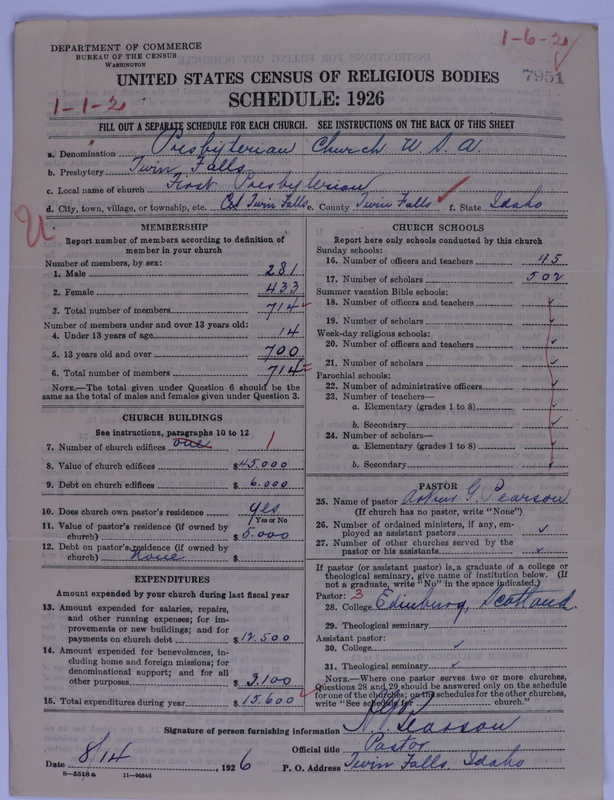 1-6-2
DEPARTMENT OF COMMERCE
BUREAU OF THE CENSUS
WASHINGTON
7951
UNITED STATES CENSUS OF RELIGIOUS BODIES
SCHEDULE: 1926
1-1-2
FILL OUT A SEPARATE SCHEDULE FOR EACH CHURCH. SEE INSTRUCTIONS ON THE BACK OF THIS SHEET
a. Denomination Presbyterian Church U.S.A.
b. Presbytery Twin Falls
c. Local name of church First Presbyterian
d. City, town, village, or township, etc. Twin Falls e. County Twin Falls f. State Idaho
U
MEMBERSHIP
Report number of members according to definition of
member in your church
Number of members, by sex:
1. Male 281
2. Female 433
3. Total number of members 714
Number of members under and over 13 years old:
4. Under 13 years of age 14
5. 13 years old and over 700
6. Total number of members 714
NOTE.—The total given under Question 6 should be the
same as the total of males and females given under Question 3.
CHURCH BUILDINGS
See instructions, paragraphs 10 to 12
7. Number of church edifices one 1
8. Value of church edifices $45.000
9. Debt on church edifices $ 6.000
10. Does church own pastor's residence yes
(Yes or No)
11. Value of pastor's residence (if owned by
church) $ 5.000
12. Debt on pastor's residence (if owned by
church) None $
EXPENDITURES
Amount expended by your church during last fiscal year
13. Amount expended for salaries, repairs,
and other running expenses; for im-
provements or new buildings; and for
payments on church debt $12.500
14. Amount expended for benevolences, in-
cluding home and foreign missions; for
denominational support; and for all
other purposes $ 3.100
15. Total expenditures during year $ 15.600
CHURCH SCHOOLS
Report here only schools conducted by this church
Sunday schools:
16. Number of officers and teachers 45
17. Number of scholars 502
Summer vacation Bible schools:
18. Number of officers and teachers
19. Number of scholars
Week-day religious schools:
20. Number of officers and teachers
21. Number of scholars
Parochial schools:
22. Number of administrative officers
23. Number of teachers—
a. Elementary (grades 1 to 8)
b. Secondary
24. Number of scholars—
a. Elementary (grades 1 to 8)
b. Secondary
PASTOR
25. Name of pastor Arthur G. Pearson
(If church has no pastor, write "None")
26. Number of ordained ministers, if any, em-
ployed as assistant pastors
27. Number of other churches served by the
pastor or his assistants
If pastor (or assistant pastor) is a graduate of a college or
theological seminary, give name of institution below. (If
not a graduate, write "No" in the space indicated.)
Pastor: 3
28. College Edinburg, Scotland
29. Theological seminary
Assistant pastor:
30. College
31. Theological seminary
NOTE.—Where one pastor serves two or more churches,
Questions 28 and 29 should be answered only on the schedule
for one of the churches; on the schedules for the other churches,
write "See schedule for church."
Signature of person furnishing information A. G. Pearson
Official title Pastor
Date 8/14, 1926 P. O. Address Twin Falls Idaho
8—5518 a